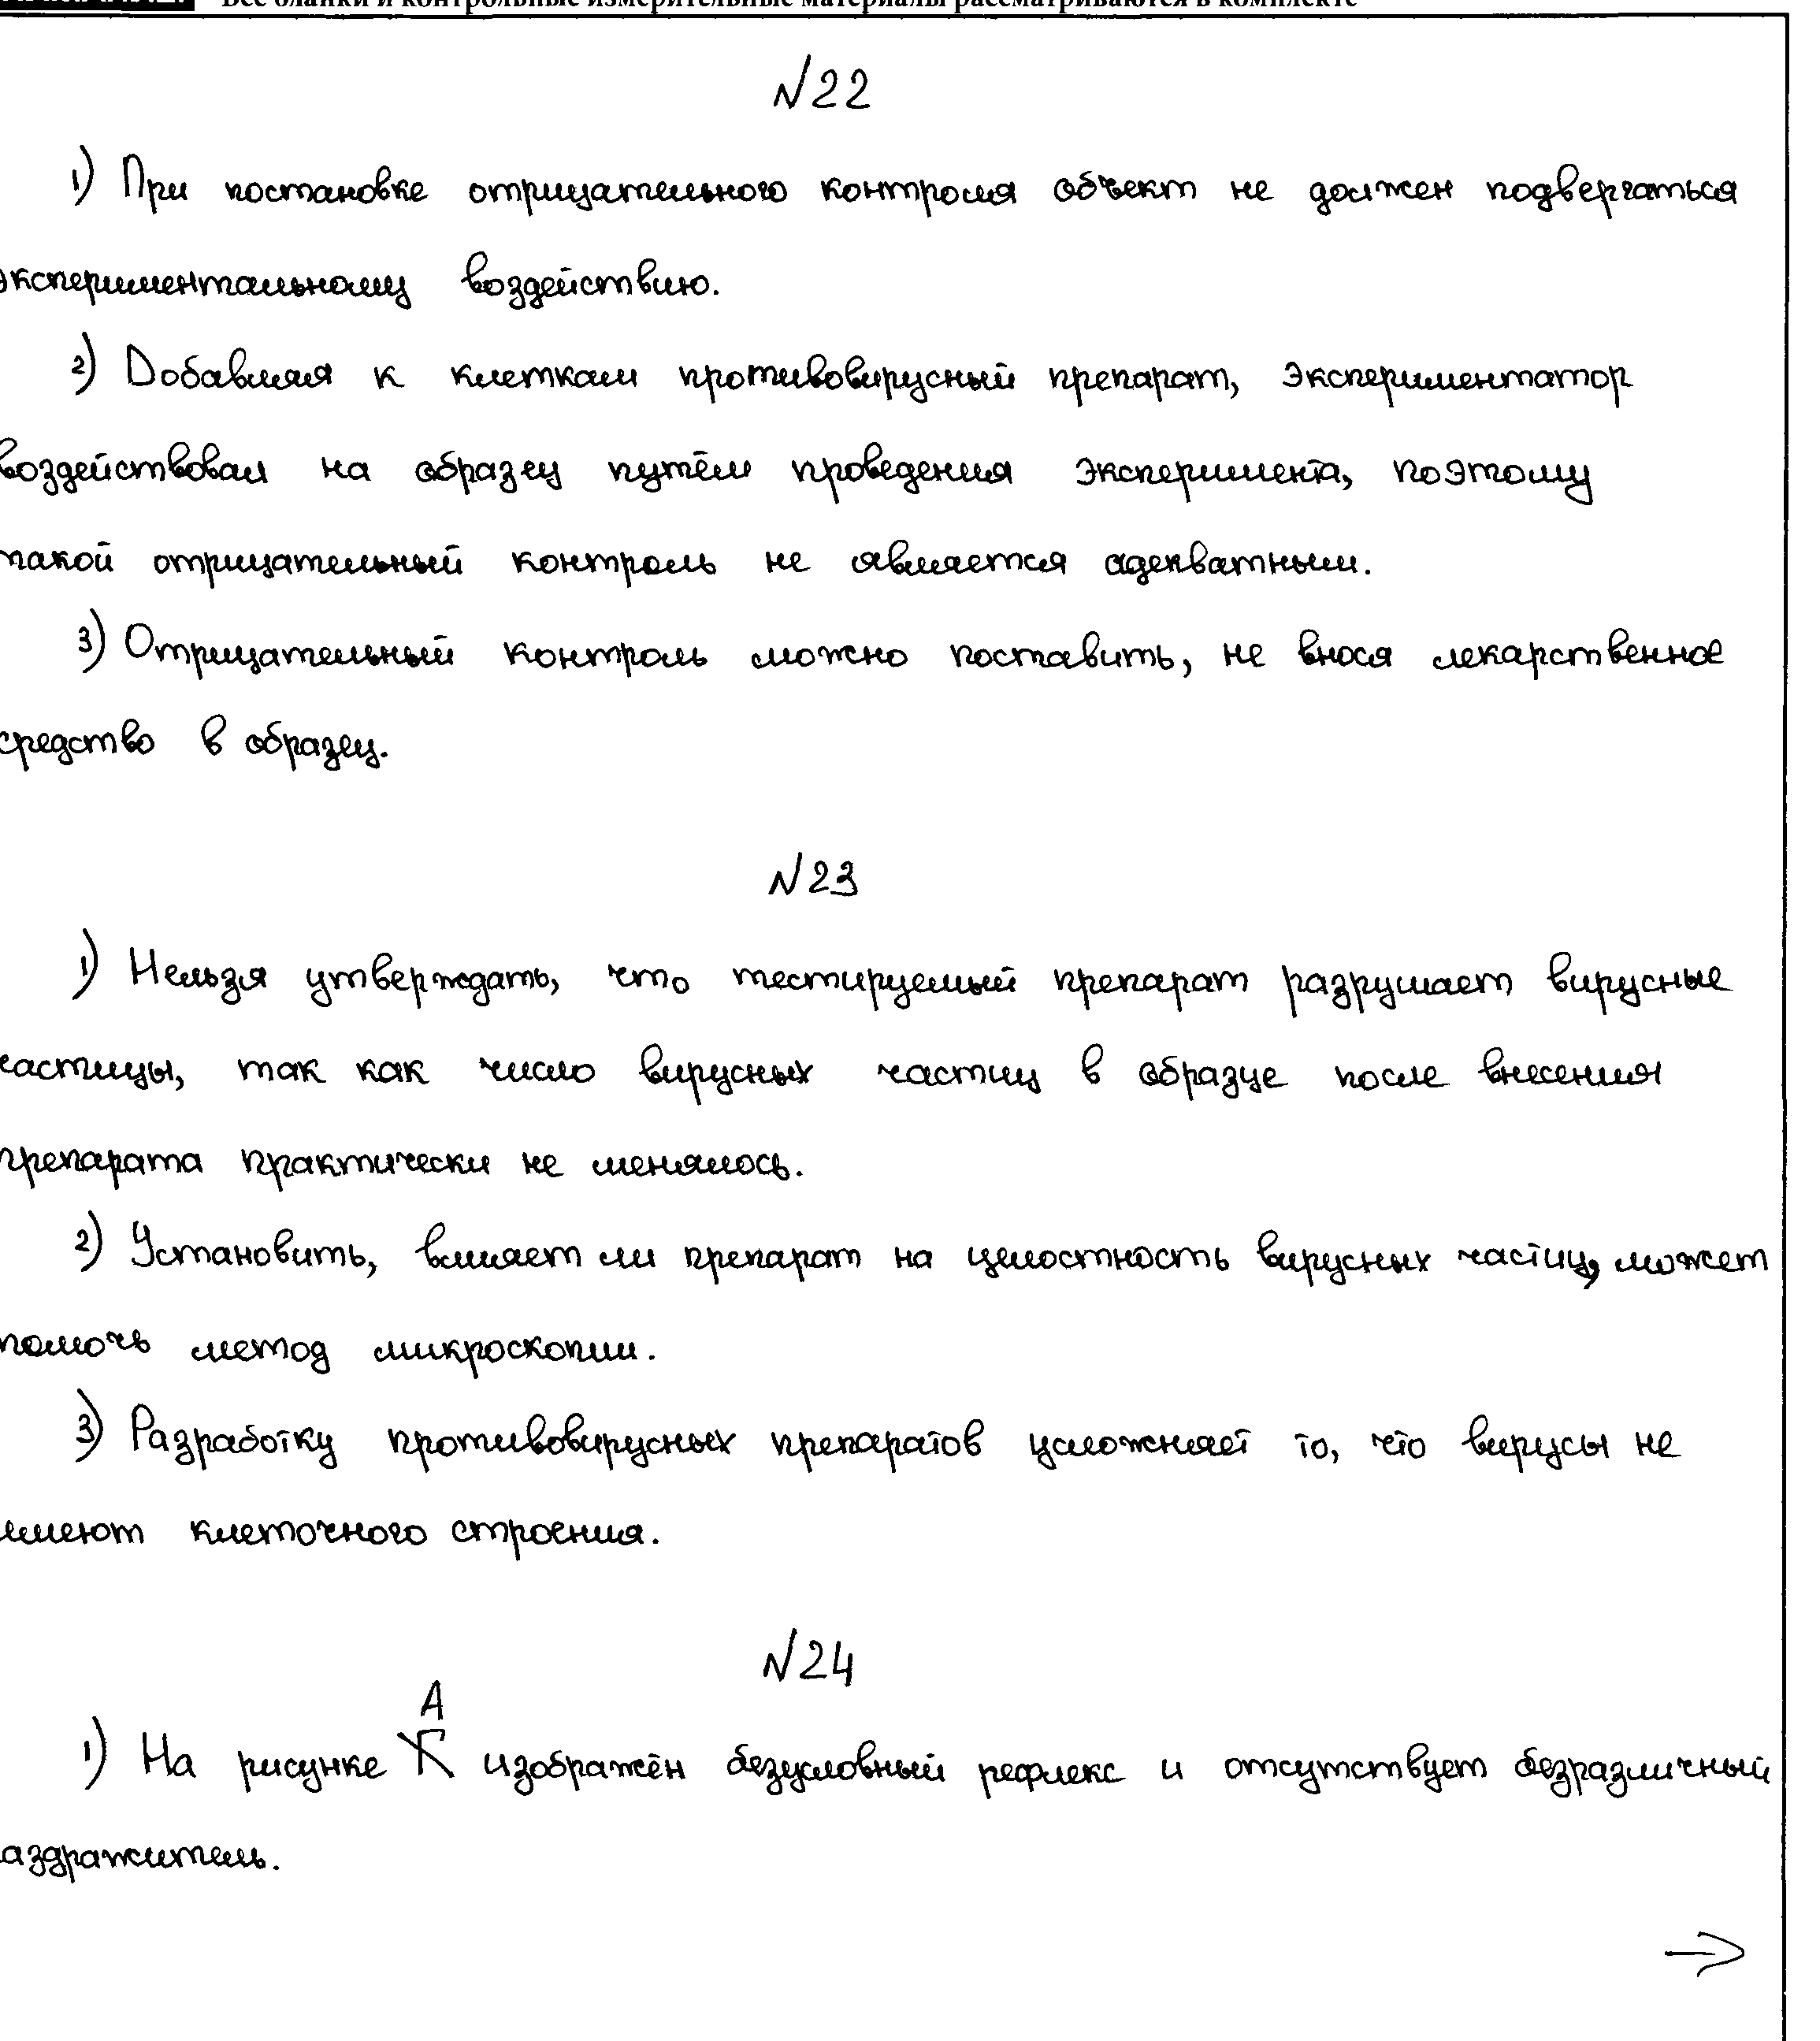 Все бланки и контрольные измерительные материалы рассматриваются в комплекте
№22
1) При постановке отрицательного контроля объект не должен подвергаться
экспериментальному воздействию.
2) Добавляя к клеткам противовирусный препарат, экспериментатор
воздействовал на образец путём проведения эксперимента, поэтому
такой отрицательный контроль не является адекватным.
3) Отрицательный контроль можно поставить, не внося лекарственное
средство в образец.
№23
1) Нельзя утверждать, что тестируемый препарат разрушает вирусные
частицы, так как число вирусных частиц в образце после внесения
препарата практически не менялось.
2) Установить, влияет ли препарат на целостность вирусных частиц, может
помочь метод микроскопии.
3) Разработку противовирусных препаратов усложняет то, что вирусы не
имеют клеточного строения.
№24
А
1) На рисунке изображён безусловный рефлекс и отсутствует безразличный
раздражитель.
→